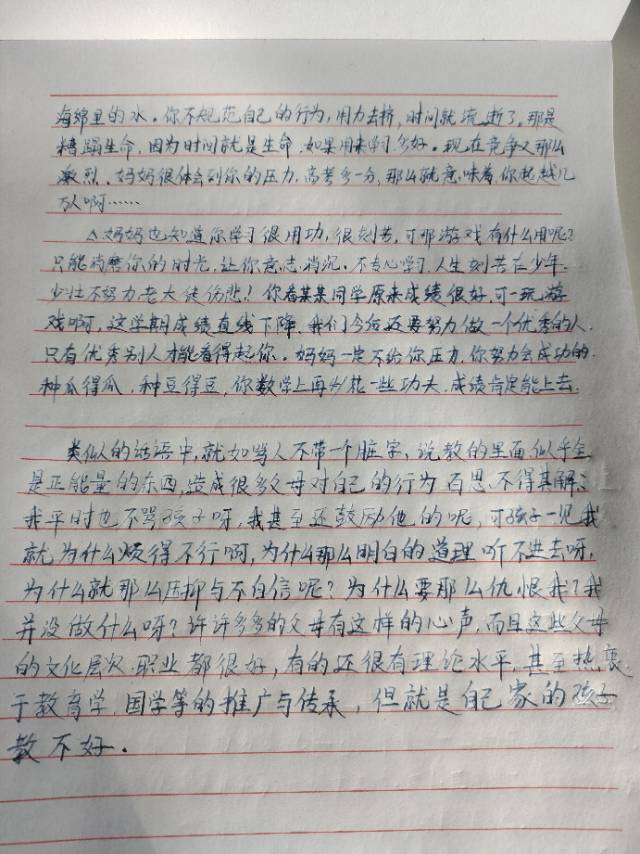 海绵里的水。你不规范自己的行为,用力去挤,时间就流逝了。那是
糟蹋生命,因为时间就是生命,如果用来学习多好。现在竞争又那么
激烈。妈妈很体会到你的压力,高考多一分,那么就意味着你超越几
万人啊……
△妈妈也知道你学习很用功,很刻苦,可那游戏有什么用呢?
只能消磨你的时光,让你意志消沉。不专心学习,人生刻苦在少年。
少壮不努力老大徒伤悲!你看某某同学原来成绩很好,可一玩游
戏啊,这学期成绩直线下降。我们今后还要努力做一个优秀的人。
只有优秀别人才能看得起你。妈妈一定不给你压力,你努力会成功的。
种瓜得瓜,种豆得豆,你数学上再多花一些功夫,成绩肯定能上去。
类似的话语中,就如骂人不带一个脏字,说教的里面似乎全
是正能量的东西,造成很多父母对自己的行为百思不得其解:
我平时也不骂孩子呀,我甚至还鼓励他的呢,可孩子一见我
就为什么烦得不行啊,为什么那么明白的道理听不进去呀,
为什么就那么压抑与不自信呢?为什么要那么仇恨我?我
并没做什么呀?许许多多的父母有这样的心声,而且这些父母
的文化层次、职业都很好,有的还很有理论水平,甚至热衷
于教育学、国学等的推广与传承,但就是自己家的孩子
教不好。